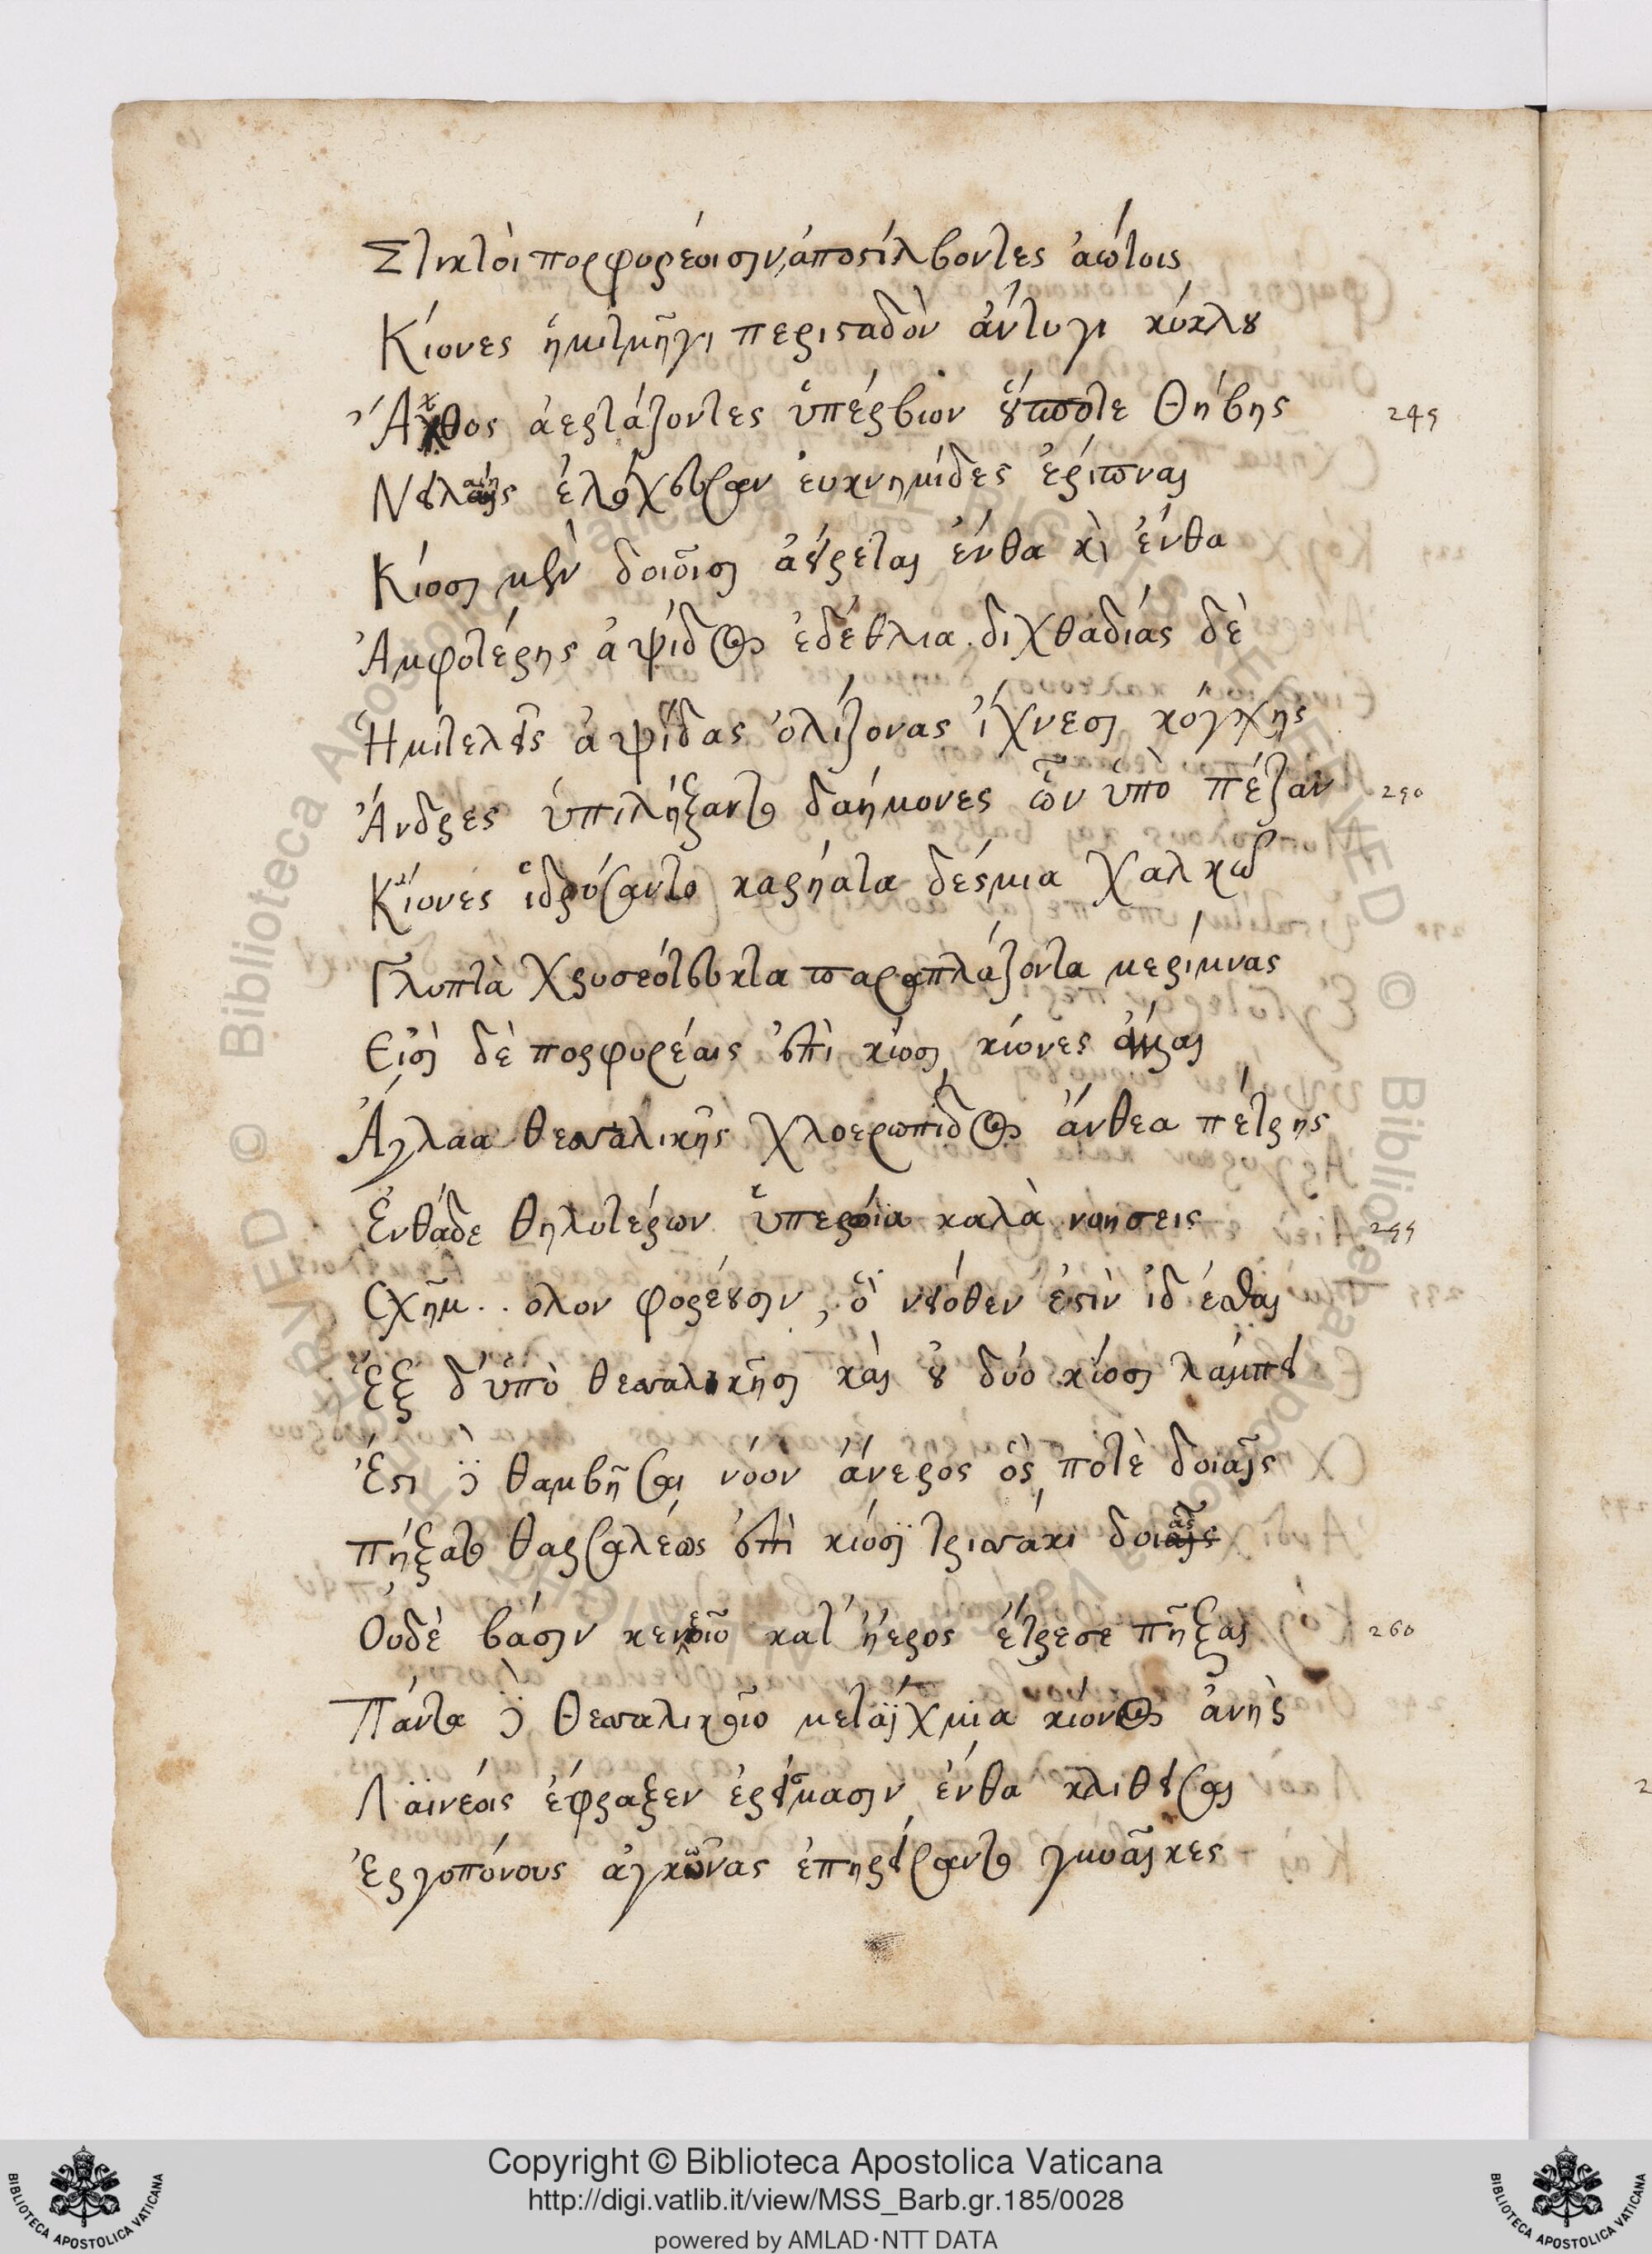 Στικτοὶ πορφυρέοισιν, ἀποστίλβοντες ἀώτοις
Κίονες ἡμιτμῆγι περισταδὸν ἄντυγι κύκλου
Ἄχθος ἀερτάζοντες ὑπέρβιον οὕς ποτε Θήβης 245
Νειλαίης ἐλόχευσαν ἐυκνημῖδες ἐρίπναι
Κίοσι μὲν δοιοῖσι ἀείρεται ἔνθα καὶ ἔνθα
Ἀμφοτέρης ἀψίδος ἐδέθλια. διχθαδίας δὲ
Ἡμιτελεῖς ἀψῖδας ὀλίζονας ἴχνεσι κόγχης
Ἄνδρες ὑπιλήξαντο δαήμονες ὧν ὑπὸ πέζαν 250
Κίονες ἱδρύσαντο καρήατα δέσμια χαλκῷ
Γλυπτὰ χρυσεότευκτα παραπλάζοντα μερίμνας
Εἰσὶ δὲ πορφυρέαις ἐπὶ κίοσι κίονες
Ἀγλαα θεσσαλικῆς χλοερώπιδος ἄνθεα πέτρης
Ἐνθάδε θηλυτέρων ὑπερώια καλὰ νοήσεις 255
Σχῆμ.. ολον φορέουσιν, ὃ νειόθεν ἐστὶν ἰδέσθαι
Ἓξ δ' ὑπὸ θεσσαλικῇσι καὶ οὐ δύο κίοσι λάμπει
Ἔστι δὲ θαμβῆσαι νόον ἀνέρος ὅς ποτὲ δοιαῖς
πήξατο θαρσαλέως ἐπὶ κίοσϊ τρισσάκι δοιὰς
Οὐδὲ βάσιν κενεοῖο κατ' ἠέρος ἔτρεσε πῆξαι 260
Πάντα δὲ θεσσαλικοῖο μεταίχμια κίονος ἀνὴρ
Λαϊνέοις ἔφραξεν ἐρείσμασιν ἔνθα κλιθεῖσαι
Ἐργοπόνους ἀγκῶνας ἐπηρείσαντο γυναῖκες
© Biblioteca Apostolica Vaticana ALL RIGHTS RESERVED
Copyright © Biblioteca Apostolica Vaticana
http://digi.vatlib.it/view/MSS_Barb.gr.185/0028
powered by AMLAD·NTT DATA
BIBLIOTECA APOSTOLICA VATICANA
BIBLIOTECA APOSTOLICA VATICANA